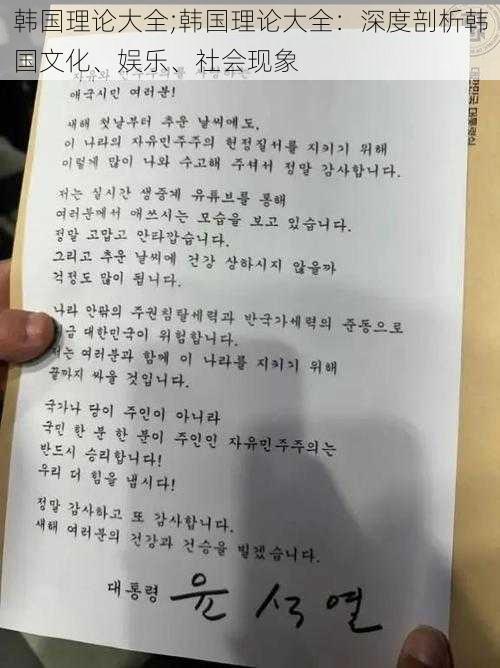 韩国理论大全;韩国理论大全：深度剖析韩
国文化、娱乐、社会现象
자유와 민주주의를 사랑하는
애국시민 여러분!
새해 첫날부터 추운 날씨에도,
이 나라의 자유민주주의 헌정질서를 지키기 위해
이렇게 많이 나와 수고해 주셔서 정말 감사합니다.
저는 실시간 생중계 유튜브를 통해
여러분께서 애쓰시는 모습을 보고 있습니다.
정말 고맙고 안타깝습니다.
그리고 추운 날씨에 건강 상하시지 않을까
걱정도 많이 됩니다.
나라 안팎의 주권침탈세력과 반국가세력의 준동으로
금 대한민국이 위험합니다.
저는 여러분과 함께 이 나라를 지키기 위해
끝까지 싸울 것입니다.
국가나 당이 주인이 아니라
국민 한 분 한 분이 주인인 자유민주주의는
반드시 승리합니다!
우리 더 힘을 냅시다!
정말 감사하고 또 감사합니다.
새해 여러분의 건강과 건승을 빌겠습니다.
대통령 윤석열
대한민국 대통령실